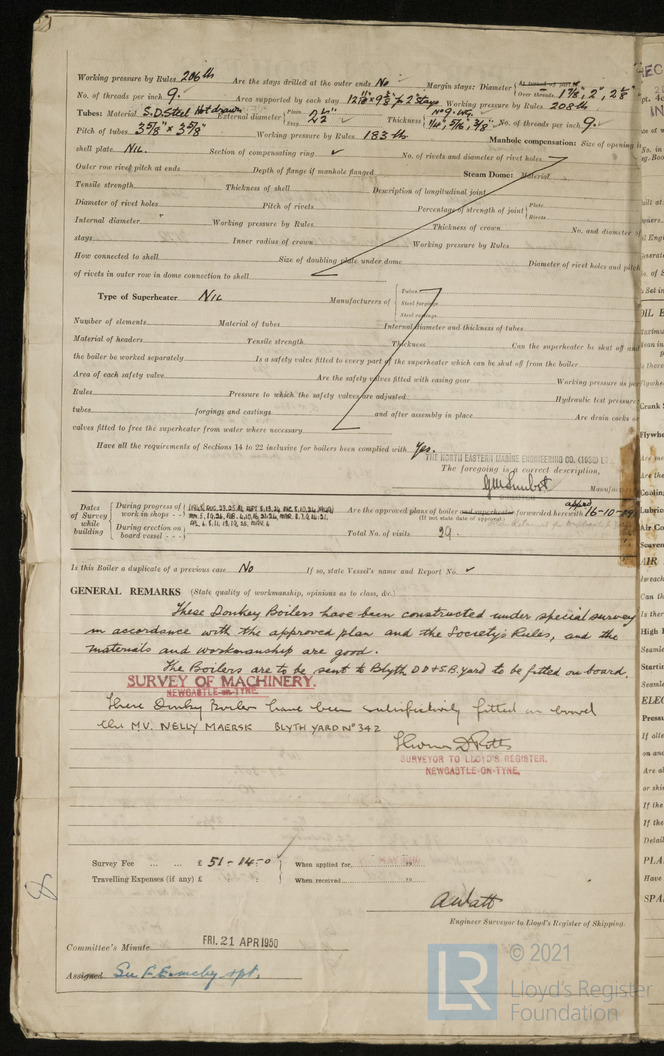 Working pressure by Rules 206 lb Are the stays drilled at the outer ends No Margin stays: Diameter { At turned off part or Over threads 1⅞", 2", 2⅛"
No. of threads per inch 9. Area supported by each stay Working pressure by Rules 208 lb
Tubes: Material S.D Steel Hot drawn External diameter { Plain Stay 2½" Thickness { No 9. WG. 1/4", 5/16", 3/8" No. of threads per inch 9.
Pitch of tubes 3⅝" x 3⅝" Working pressure by Rules 183 lb Manhole compensation: Size of opening in
shell plate NIL. Section of compensating ring ✓ No. of rivets and diameter of rivet holes
Outer row rivet pitch at ends Depth of flange if manhole flanged Steam Dome: Material
Tensile strength Thickness of shell Description of longitudinal joint
Diameter of rivet holes Pitch of rivets Percentage of strength of joint { Plate Rivets
Internal diameter Working pressure by Rules Thickness of crown No. and diameter of
stays Inner radius of crown Working pressure by Rules
How connected to shell Size of doubling plate under dome Diameter of rivet holes and pitch
of rivets in outer row in dome connection to shell
Type of Superheater NIL Manufacturers of { Tubes Steel forgings Steel castings
Number of elements Material of tubes Internal diameter and thickness of tubes
Material of headers Tensile strength Thickness Can the superheater be shut off and
the boiler be worked separately Is a safety valve fitted to every part of the superheater which can be shut off from the boiler
Area of each safety valve Are the safety valves fitted with easing gear Working pressure as per
Rules Pressure to which the safety valves are adjusted Hydraulic test pressure
tubes forgings and castings and after assembly in place Are drain cocks or
valves fitted to free the superheater from water where necessary
Have all the requirements of Sections 14 to 22 inclusive for boilers been complied with Yes.
THE NORTH EASTERN MARINE ENGINEERING CO. (1938) L
The foregoing is a correct description,
Manufac
Dates of Survey while building { During progress of work in shops - - { During erection on board vessel - - -
Are the approved plans of boiler and superheater forwarded herewith appd 16-10-
(If not state date of approval.)
Total No. of visits 29.
Is this Boiler a duplicate of a previous case No If so, state Vessel's name and Report No. ✓
GENERAL REMARKS (State quality of workmanship, opinions as to class, &c.)
These Donkey Boilers have been constructed under special survey
in accordance with the approved plan and the Society's Rules, and the
materials and workmanship are good.
The Boilers are to be sent to Blyth D.D & S.B. yard to be fitted on board.
SURVEY OF MACHINERY.
NEWCASTLE-on-TYNE.
These Donkey Boilers have been satisfactorily fitted on board
the MV. NELLY MAERSK BLYTH YARD No 342
Thomas D Potts
SURVEYOR TO LLOYD'S REGISTER.
NEWCASTLE-ON-TYNE.
Survey Fee ... ... £ 51-14-0 When applied for 19
Travelling Expenses (if any) £ : : When received 19
A Watt
Engineer Surveyor to Lloyd's Register of Shipping.
Committee's Minute FRI. 21 APR 1950
Assigned See F.E. mchy rpt.
LR © 2021
Lloyd's Register
Foundation